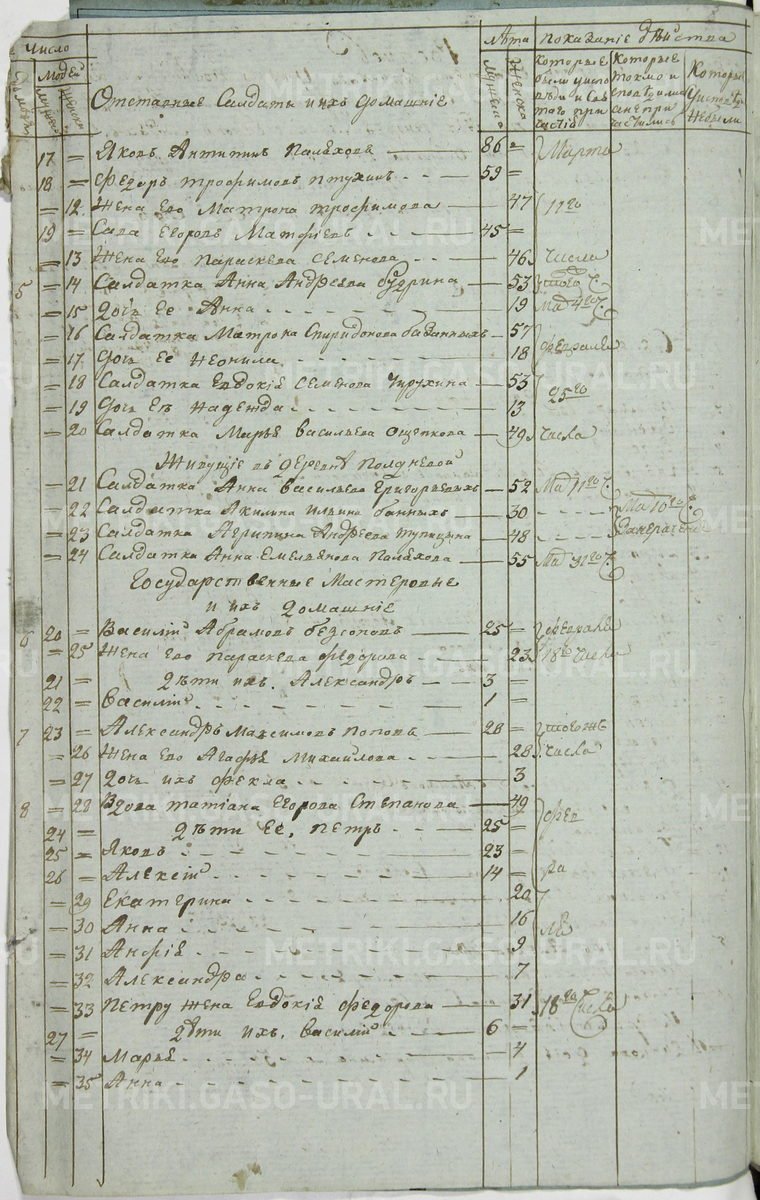 Число Лѣта Показанiе дѣйства
Людей
Мужеска Женска
Отставные Салдаты и ихъ домашнiе
которые были у исповѣди и свѣтого причастiя
которые токмо исповѣдылись а не причастились
которые у исповѣди не были
17 = Яковъ Антипинъ Палѣховъ 86 = Марта
18 = Федоръ Трофимовъ Птухинъ 59 =
= 12 Жена Ево Матрона Трофимова 47 11го
19 = Сава Егоровъ Матфiевъ 45 =
= 13 Жена Ево Параскева Семенова 46 числа
5 = 14 Салдатка Анна Андреева 53 того Ч
= 15 Дочь Ее Анна 19 Ма 4го Ч
= 16 Салдатка Матрона Спиридонова 57
= 17 дочь Ее Неонила 18 февраля
= 18 Салдатка Евдокiя Семенова Чирухина 53
= 19 дочь Еѣ Надежда 13 25го
= 20 Салдатка Марья Васильева Ощепкова 49 числа
Живущiе въ деревнѣ Полдневой
= 21 Салдатка Анна Васильева Григорьевыхъ 52 Ма 11го Ч
= 22 Салдатка Акилина Ильина Банныхъ 30 Ма 10го
= 23 Салдатка Агрипина Андреева Тупицына 48
= 24 Салдатка Анна Емельянова Палѣхова 55 Ма 31го Ч
Государственные Мастеровые
и ихъ домашнiе
6 20 = Василiй Абрамовъ Безсоновъ 25 = февраля
= 25 Жена Ево Параскева Федорова 23 18го числа
21 = Дѣти ихъ. Александръ 3 =
22 = Василiй 1 =
7 23 = Александръ Максимовъ Поповъ 28 = тогожъ
= 26 Жена Ево Агафья Михаилова 28 числа
= 27 Дочь ихъ Фекла 3
8 = 28 Вдова Татiана Егорова Степанова 49 фев
24 = Дѣти Ее, Петръ 25 =
25 = Яковъ 23 =
26 = Алексiй 14 = ра
= 29 Екатерина 20
= 30 Анна 16 ля
= 31 Анфiя 9
= 32 Александра 7
= 33 Петру Жена Евдокiя Федорова 31 18го числа
27 = Дѣти ихъ. Василiй 6 =
= 34 Марья 4
= 35 Анна 1
METRIKI.GASO-URAL.RU